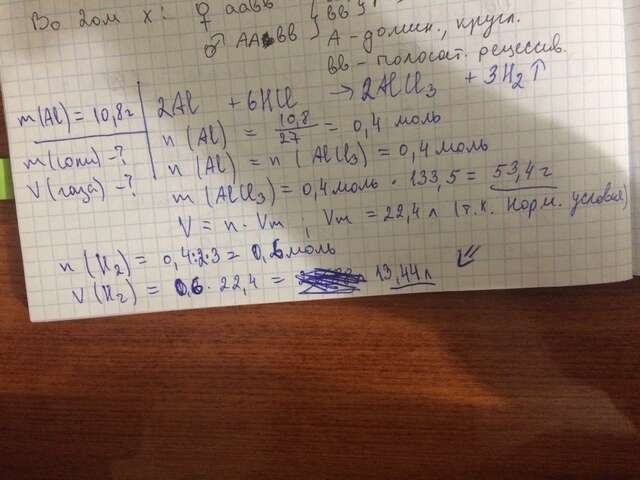 Во 2ом х: ♀ aaвв } вв
♂ AAвв } A - домин., кругл.
вв - полосат. рецессив.
m(Al) = 10,8г | 2Al + 6HCl → 2AlCl₃ + 3H₂↑
m(соли) - ? n(Al) = 10,8/27 = 0,4 моль
V(газа) - ? n(Al) = n(AlCl₃) = 0,4 моль
m(AlCl₃) = 0,4 моль · 133,5 = 53,4 г
V = n · Vm, Vm = 22,4 л (т.к. норм. условия)
n(H₂) = 0,4:2·3 = 0,6 моль
V(H₂) = 0,6 · 22,4 = 13,44 л